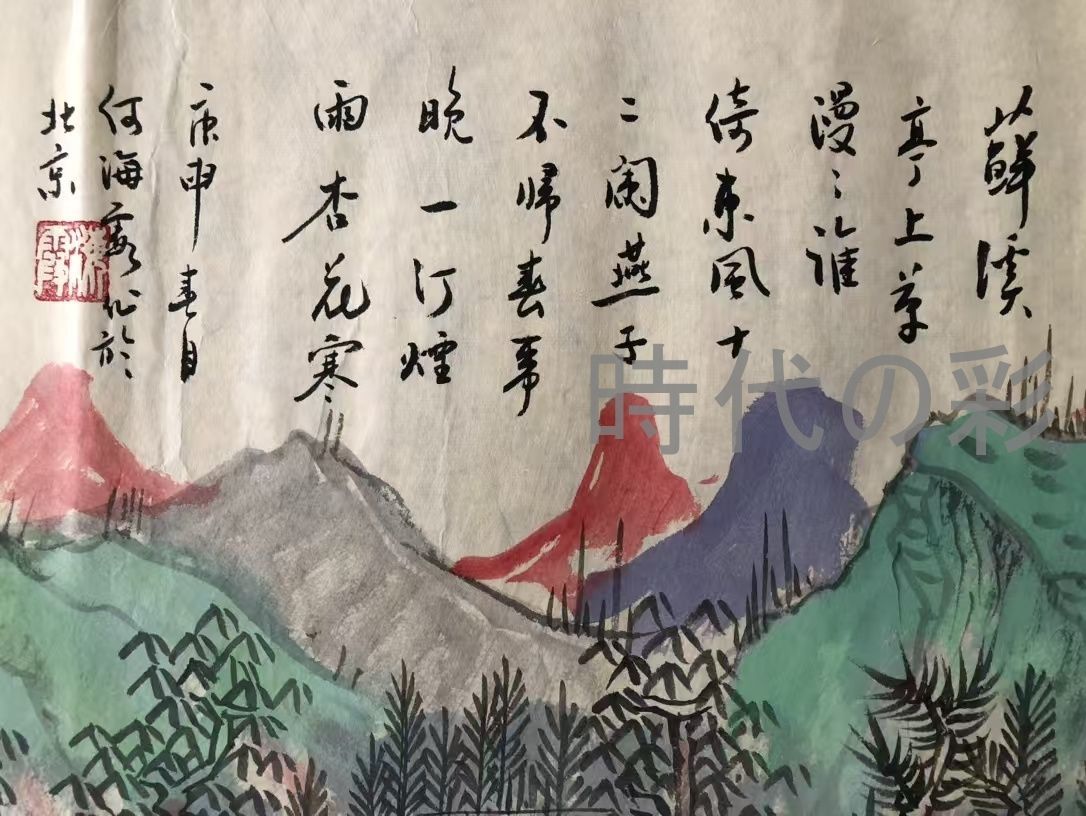 蘇溪
亭上草
漫〻誰
倚東風十
二闌燕子
不歸春事
晚一汀煙
雨杏花寒
庚申春月
何海霞作於
北京
時代の彩